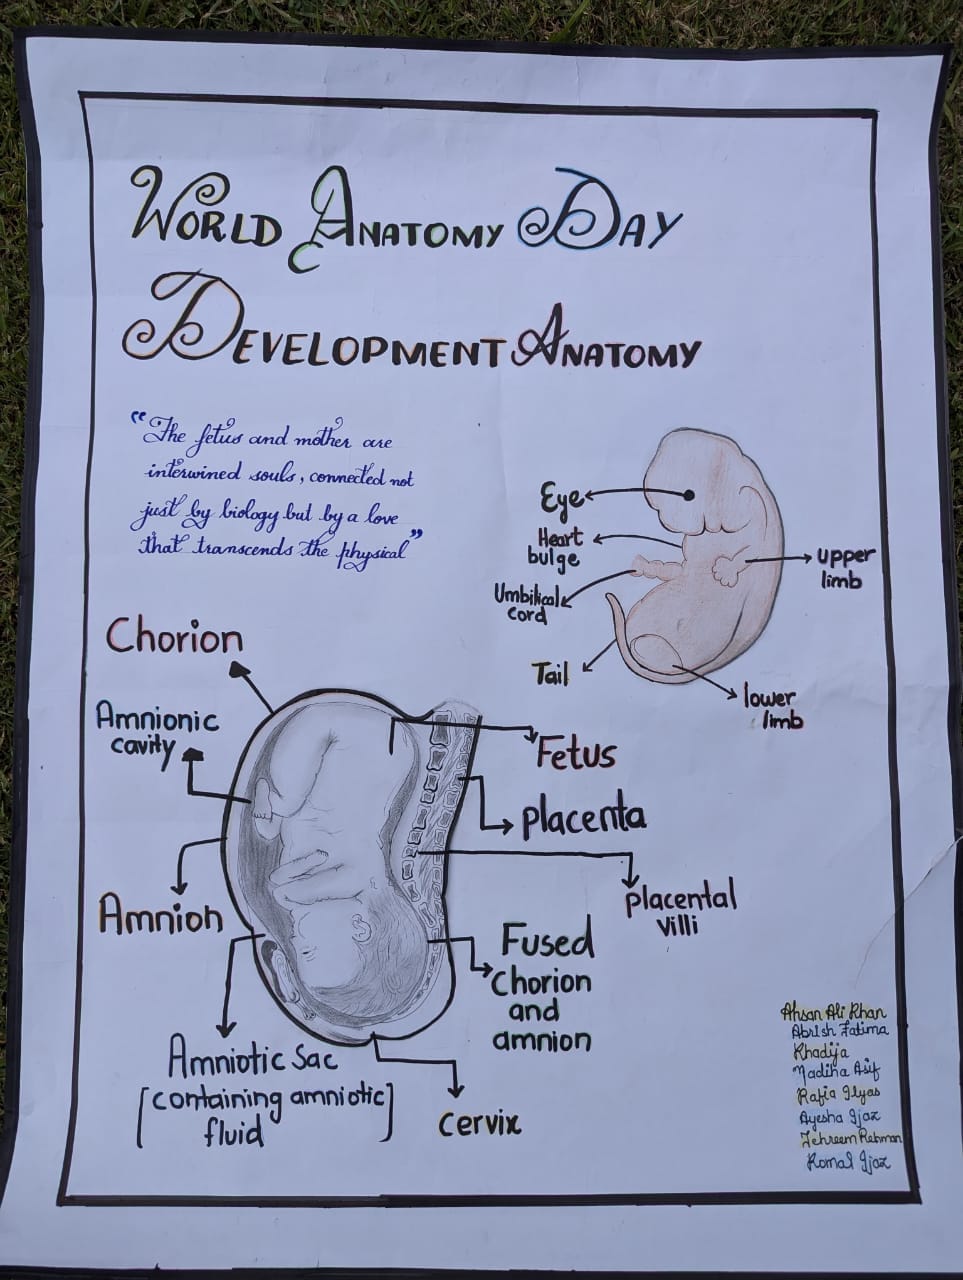 WORLD ANATOMY DAY
DEVELOPMENT ANATOMY
"The fetus and mother are
interwined souls, connected not
just by biology but by a love
that transcends the physical"
Eye
Heart
bulge
Umbilical
cord
Tail
upper
limb
lower
limb
Chorion
Amnionic
cavity
Amnion
Amniotic Sac
[containing amniotic
fluid]
Fetus
placenta
placental
villi
Fused
Chorion
and
amnion
cervix
Ahsan Ali Khan
Abrish Fatima
Khadija
Madiha Asif
Rafia Ilyas
Ayesha Ijaz
Tehreem Rehman
Romal Ijaz